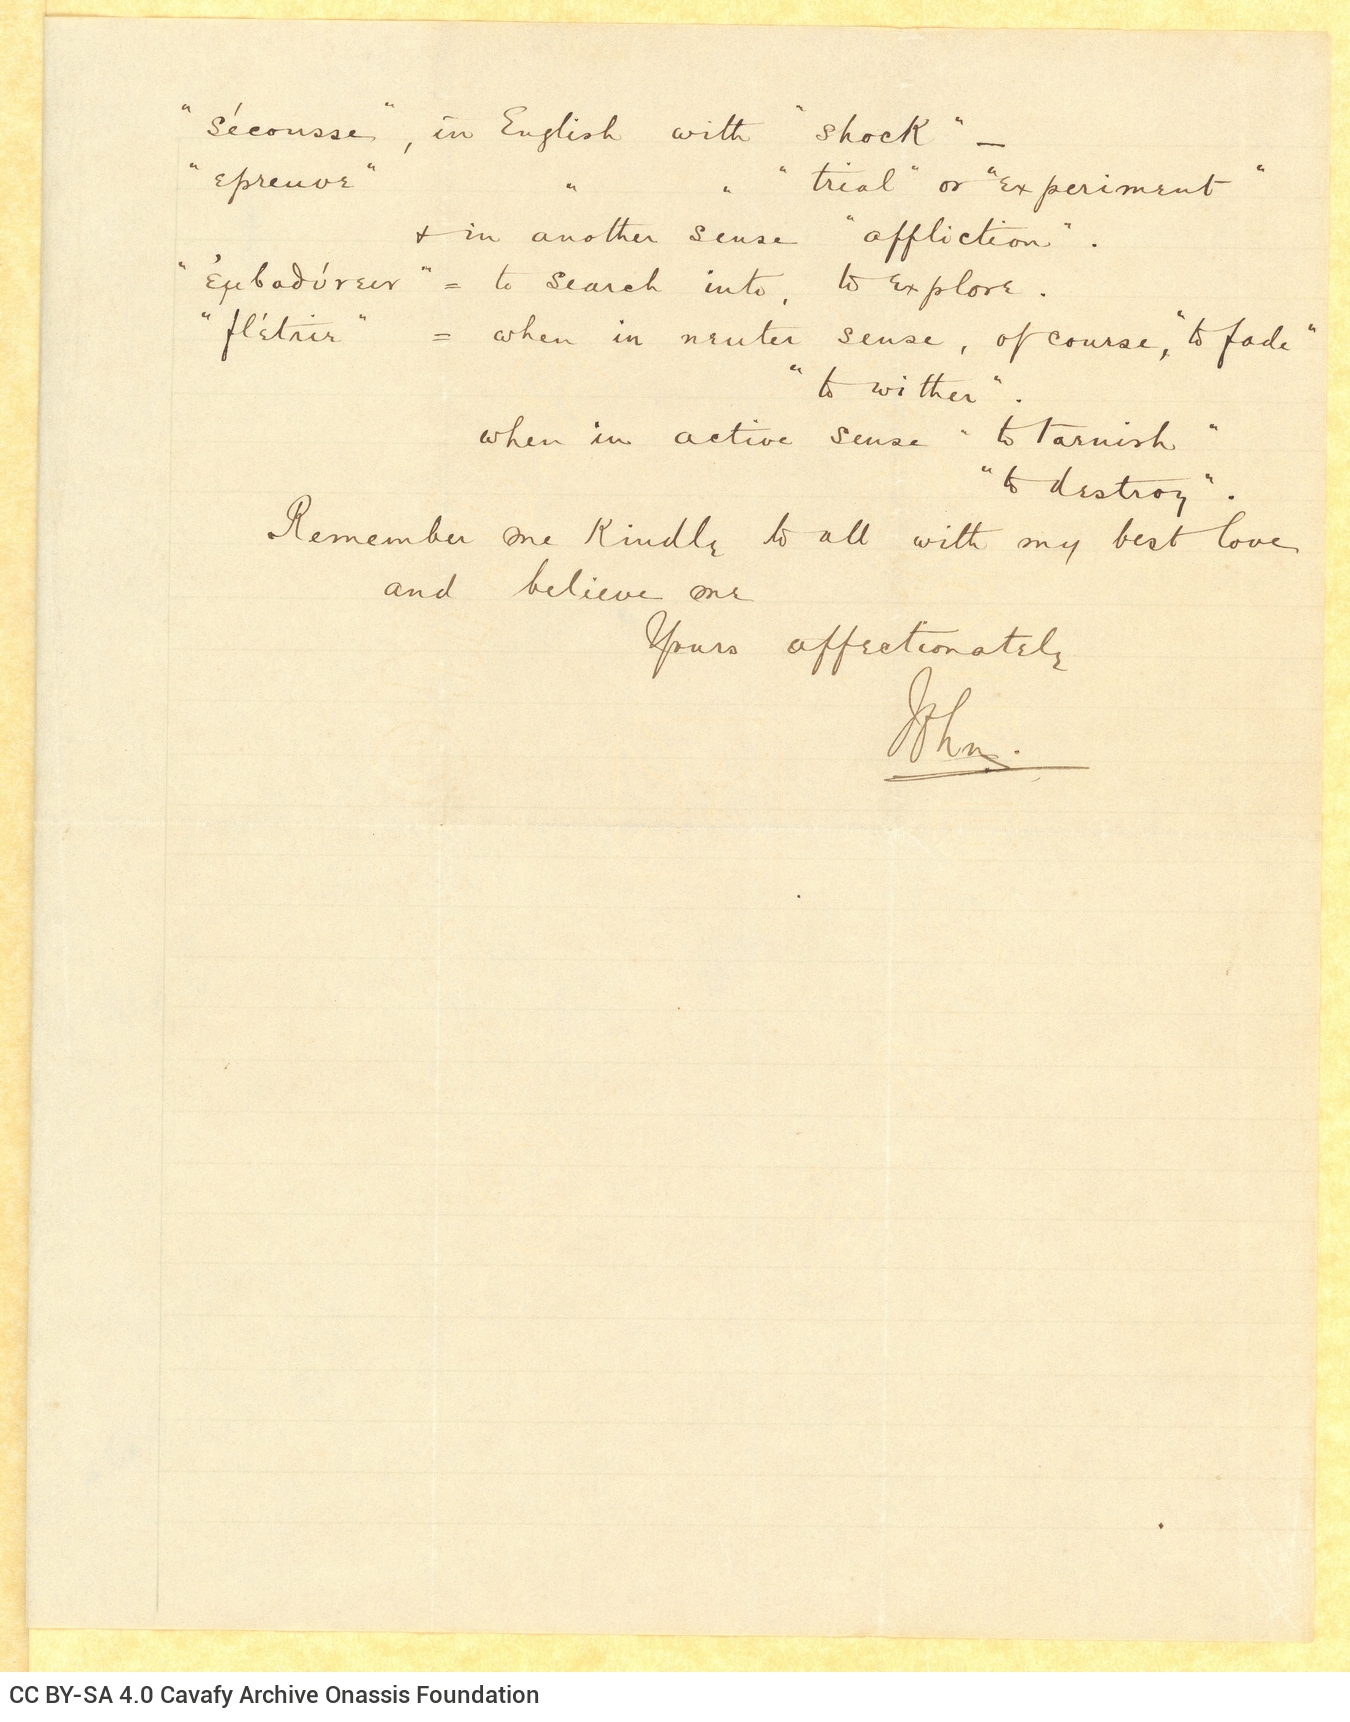 "sécousse", in English with "shock" —
"epreuve" " " "trial" or "experiment"
& in another sense "affliction".
"ἐμβαθύνειν" = to search into, to explore.
"flétrir" = when in neuter sense, of course, "to fade"
"to wither".
when in active sense "to tarnish"
"to destroy".
Remember me kindly to all with my best love
and believe me
Yours affectionately
John.
CC BY-SA 4.0 Cavafy Archive Onassis Foundation